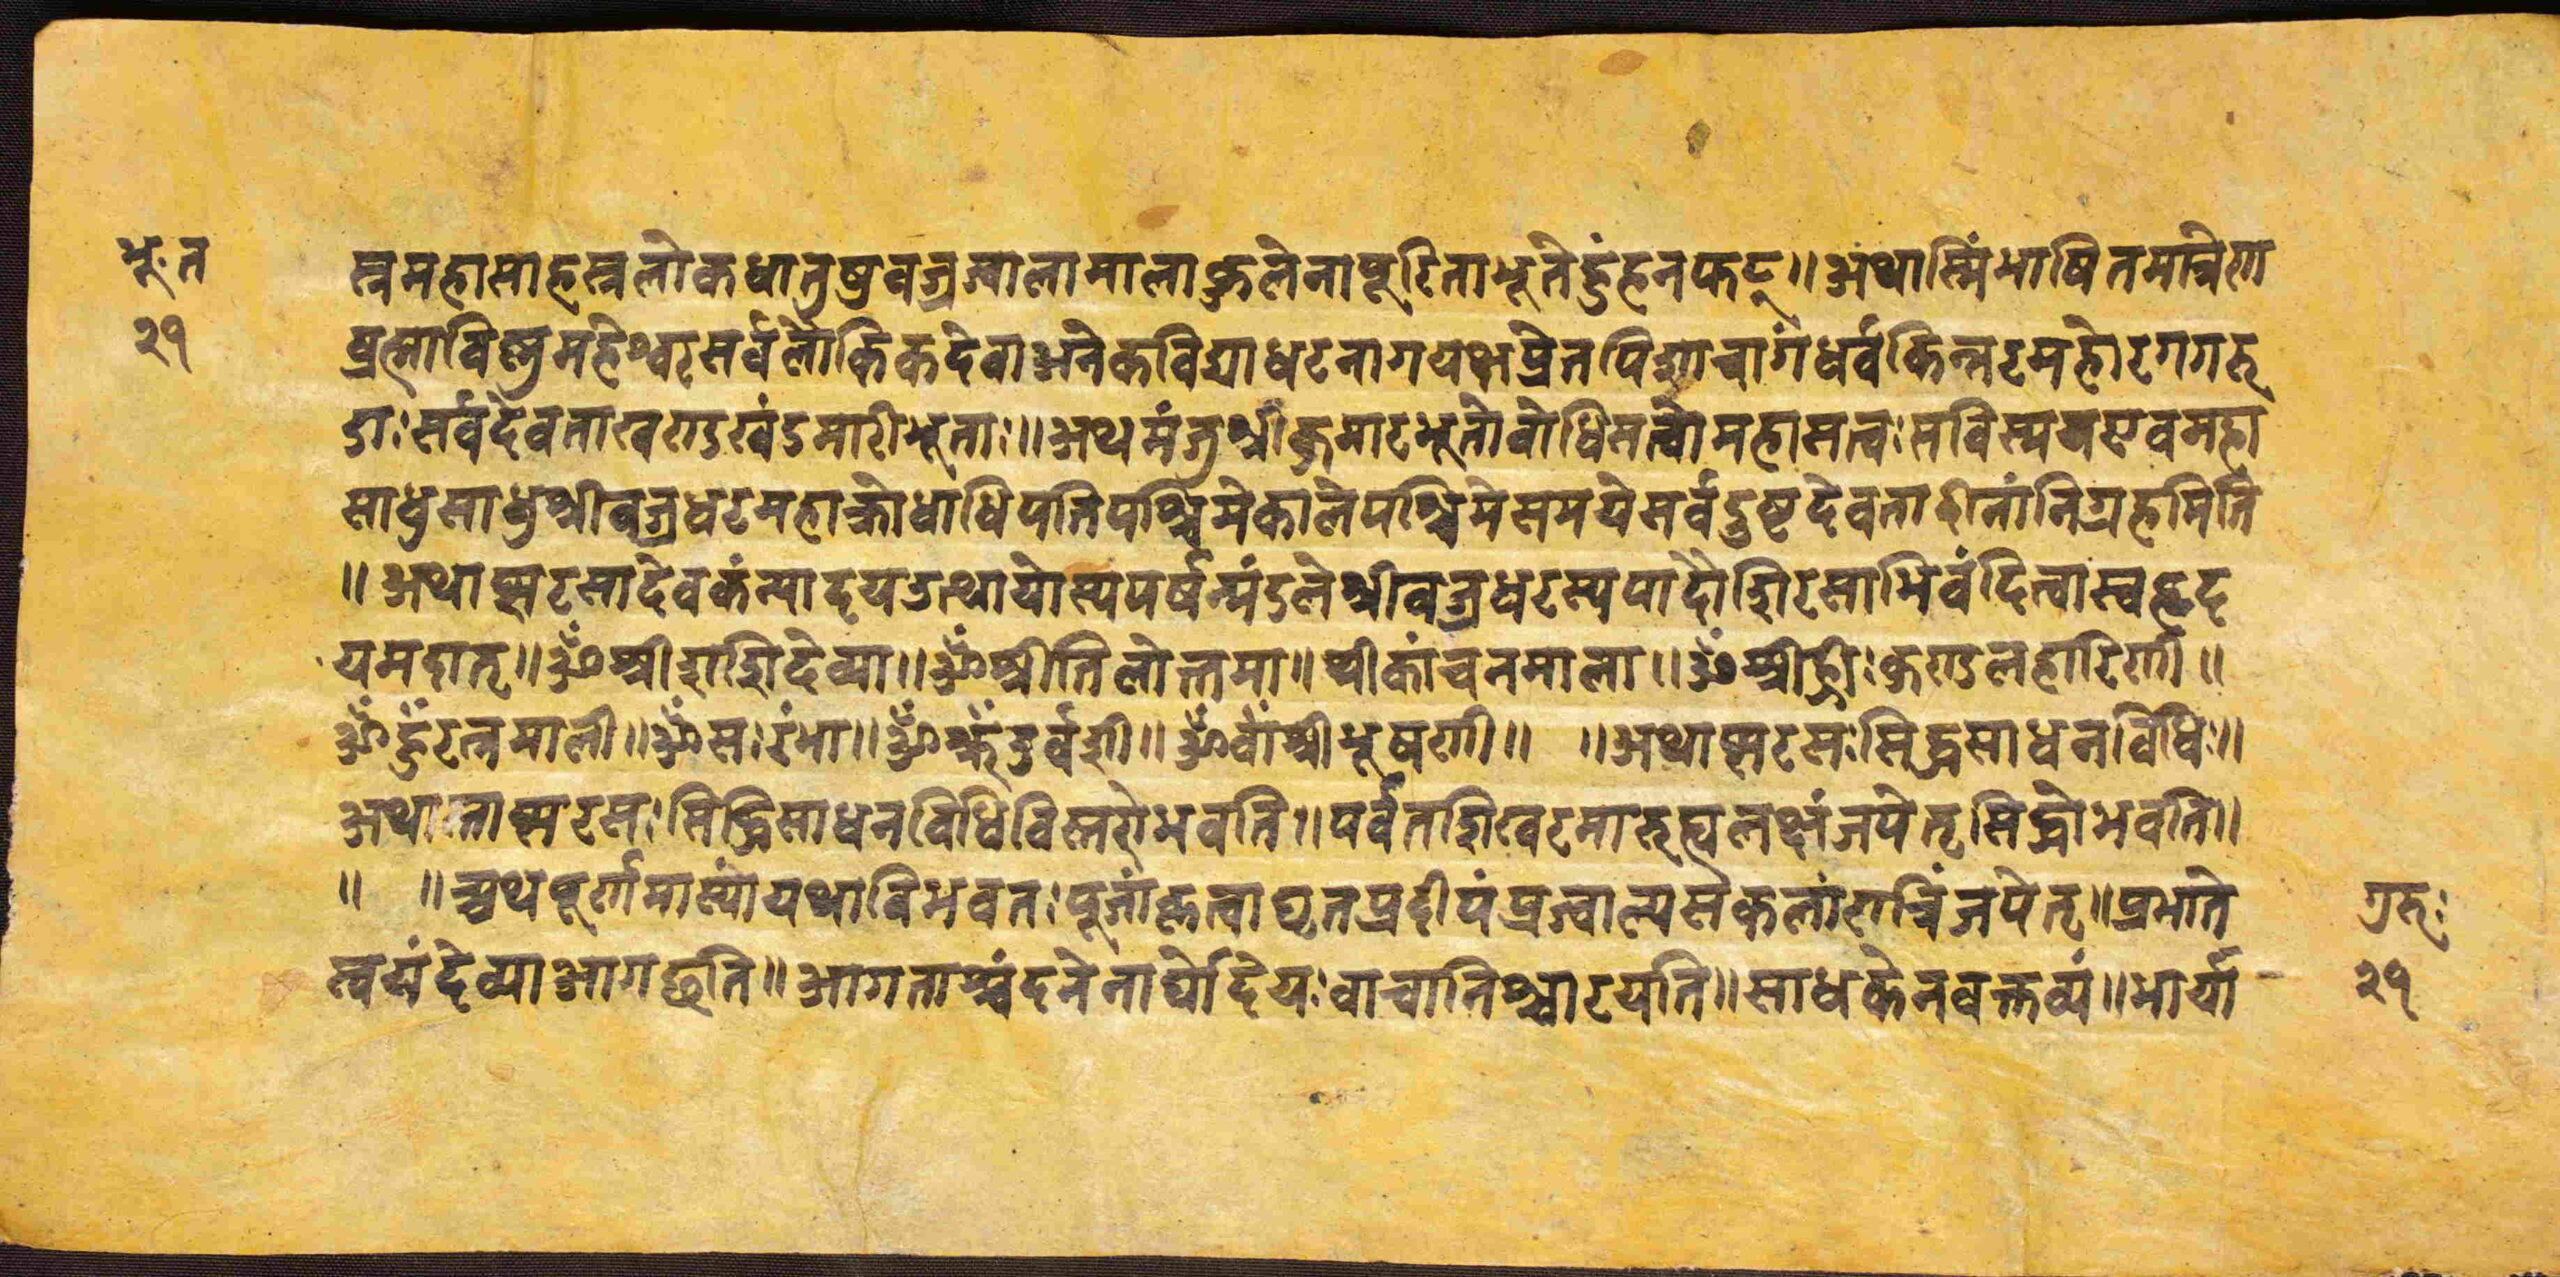 भूःत
२१
स्रमहासाहस्रलोकधातुषुवज्रज्वालामालाकुलेनापूरिताभूतेहुंहनफट्॥अथास्मिंभाषितमात्रेण
ब्रह्माविष्णुमहेश्वरसर्वलौकिकदेवाअनेकविद्याधरनागयक्षप्रेतपिशाचागंधर्वकिन्नरमहोरगगरु
डाःसर्वदेवताखण्डखंडमारीभूताः॥अथमंजुश्रीकुमारभूतोबोधिसत्वोमहासत्वःसविस्मयएवमहा
साधुसाधुश्रीवज्रधरमहाक्रोधाधिपतिपश्चिमेकालेपश्चिमेसमयेसर्वदुष्टदेवतादीनांनिग्रहमिति
॥अथाप्सरसादेवकंन्यादयउत्थायोस्यपर्षन्मंडलेश्रीवज्रधरस्यपादौशिरसाभिवंदित्वास्वहृद
यमदात्॥ॐश्रीशशिदेव्या॥ॐश्रीतिलोत्तमा॥श्रीकांचनमाला॥ॐश्रीह्रीःकुण्डलहारिणी॥
ॐहुँरत्नमाली॥ॐसःरंभा॥ॐउर्वशी॥ॐवाँश्रीभूषणी॥ ॥अथाप्सरसःसिद्धसाधनविधिः॥
अथातोप्सरसःसिद्धिसाधनविधिविस्तरोभवति॥पर्वतशिखरमारुह्यलक्षंजपेत्सिद्धोभवति॥
॥ ॥अथपूर्णमास्यांयथाविभवतःपूजांकृत्वाघृतप्रदीपंप्रज्वाल्यसकलांरात्रिंजपेत्॥प्रभाते
त्वयंदेव्याआगछति॥आगताश्चंदनेनार्घोदेयःवाचानिश्चारयति॥साधकेनवक्तव्यं॥भार्या
ग्रहः
२१